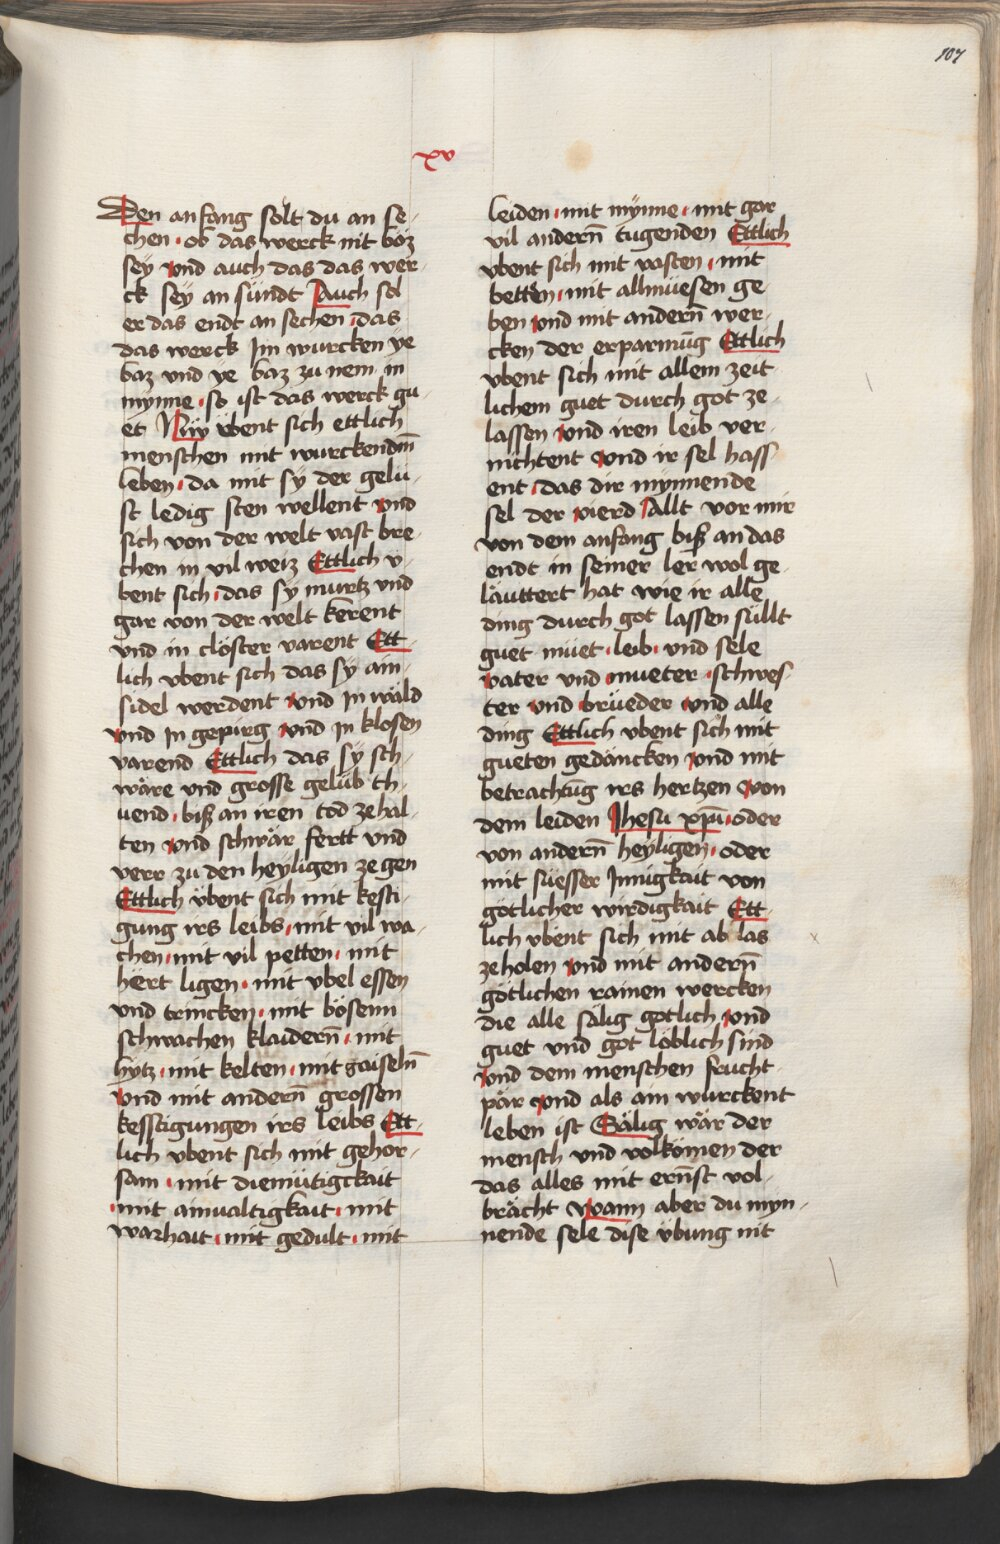 107
xv
Den anfang sölt du an se-
chen · ob das werck nit böz
seÿ und auch das das wer-
ck seÿ an sündt Auch sol
er das endt an sechen · das
das werck Im wurcken ye
baz vnd ye baz zu nem in
mÿnne · so ist das werck gu-
et Nw vbent sich ettlich
menschen mit wurckendm̄
leben · da mit sÿ der gelu-
st ledig sten wellent vnd
sich von der welt vast bre-
chen in vil weiz Ettlich v-
bent sich · das sÿ murtz vnd
gar von der welt kerent
vnd in clöster varent Ett-
lich vbent sich das sÿ ain-
sidel werdent vnd In wäld
vnd In gepirg vnd In klosen
varend Ettlich das sÿ sch-
wäre vnd grosse gelüb th-
uend · biß an iren tod ze hal-
ten vnd schwär fertt vnd
verr zu den heÿligen ze gen
Ettlich übent sich mit kesti-
gung irs leibs · mit vil wa-
chen · mit vil petten · mit
hërt ligen · mit vbel essen
vnd trincken · mit bösenn
schwachen klaidern̄ · mit
hÿtz · mit kelten · mit gaiseln̄
vnd mit andern̄ grossen
kesstigungen irs leibs Ett-
lich vbent sich mit gehor-
sam · mit diemütigckait
· mit ainualtigkait · mit
warhait · mit gedult · mit
leiden · mit mÿnne · mit gar
vil andern̄ tugenden Ettlich
vbent sich mit vasten · mit
betten · mit allmüesen ge-
ben vnd mit andern̄ wer-
cken der erparmūg Ettlich
vbent sich mit allem zeit-
lichem guet durch got ze-
lassen vnd iren leib ver-
nichtent vnd ir sel hass-
ent · das dir mÿnnende
sel der vierd Allt vor mir
von dem anfang biß an das
endt in seiner ler wol ge-
läuttert hat wie ir alle
ding durch got lassen süllt
guet müet · leib · vnd sele
vater vnd mueter · schwes-
ter vnd brüeder vnd alle
ding Ettlich vbent sich mit
gueten gedäncken vnd mit
betrachtūg irs hertzen von
dem leiden Jhesu xp̄i · oder
von andern̄ heÿligen · oder
mit süesser Innigkait von
götlicher wirdigkait Ett-
lich vbent sich mit ab las
ze holen vnd mit andern̄
götlichen rainen wercken
die alle sälig gotlich vnd
guet vnd got löblich sind
vnd dem menschen frucht-
pär vnd als ain wurckent
leben ist Sälig wär der
mensch vnd volkömen der
das alles mit ern̄st vol-
brächt wann aber du mÿn-
nende sele dise übung nit